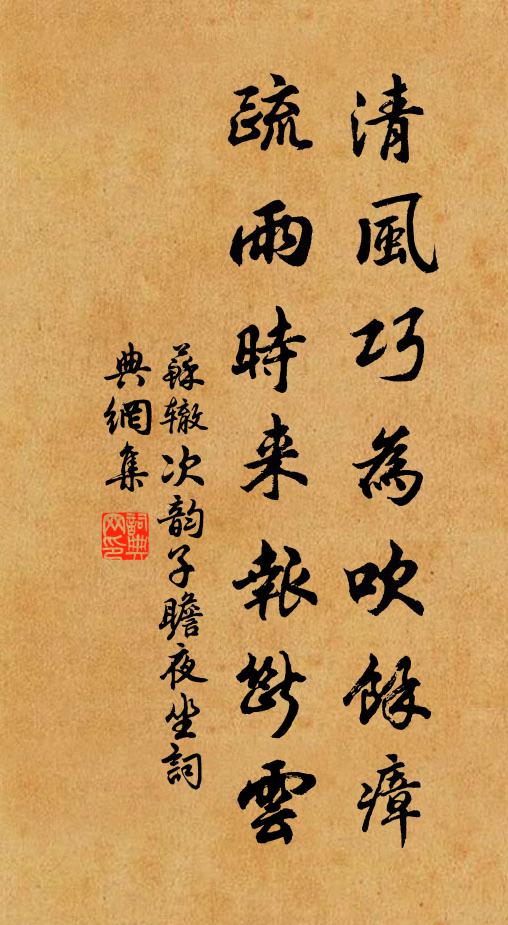 清風巧為吹餘瘴
疏雨時来報斷雲
蘇辙次韵子瞻夜坐詞
典網集
詞典网印